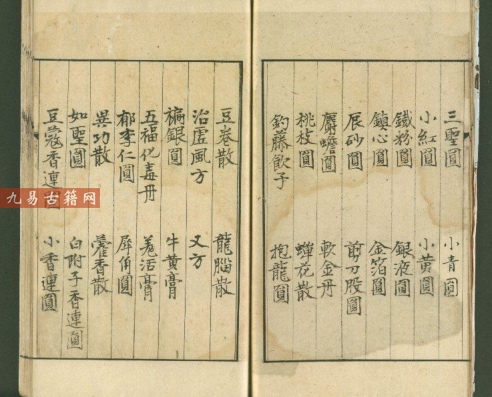 三聖圓 小青圓
小紅圓 小黄圓
鐵粉圓 銀液圓
鎮心圓 金箔圓
辰砂圓 剪刀股圓
麝蟾圓 軟金丹
桃枝圓 蟬花散
釣藤飲子 抱龍圓
豆卷散 龍腦散
治虛風方 又方
褊銀圓 牛黄膏
五福化毒丹 羗活膏
郁李仁圓 犀角圓
異功散 藿香散
如聖圓 白附子香連圓
豆蔻香連圓 小香連圓
九易古籍网